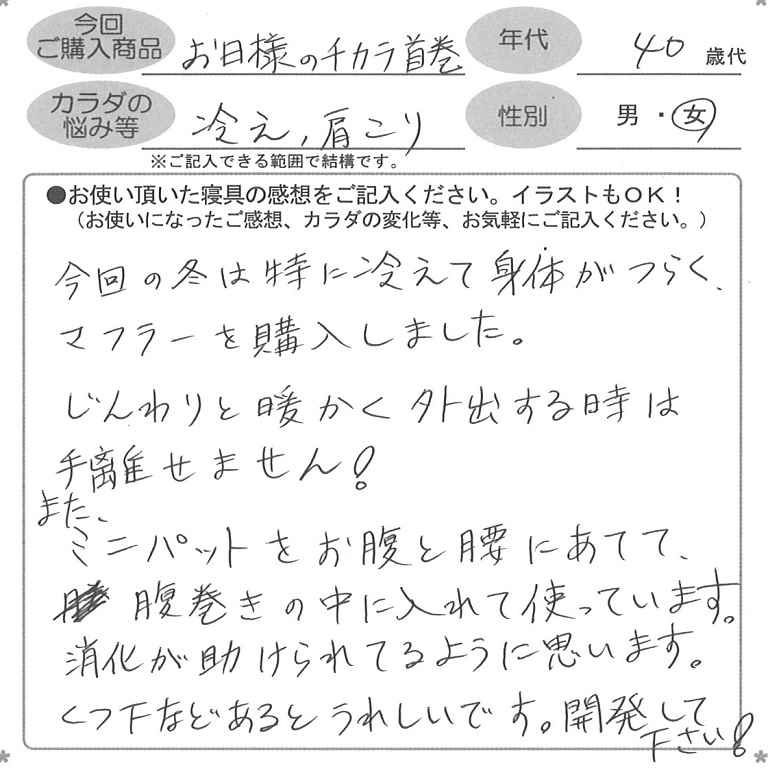 今回ご購入商品 お日様のチカラ首巻 年代 40 歳代
カラダの悩み等 冷え,肩こり 性別 男・女
※ご記入できる範囲で結構です。
●お使い頂いた寝具の感想をご記入ください。イラストもOK!
(お使いになったご感想、カラダの変化等、お気軽にご記入ください。)
今回の冬は特に冷えて身体がつらく、
マフラーを購入しました。
じんわりと暖かく外出する時は
手離せません!
また、
ミニパットをお腹と腰にあてて、
腹巻きの中に入れて使っています。
消化が助けられてるように思います。
くつ下などあるとうれしいです。開発して
下さい!